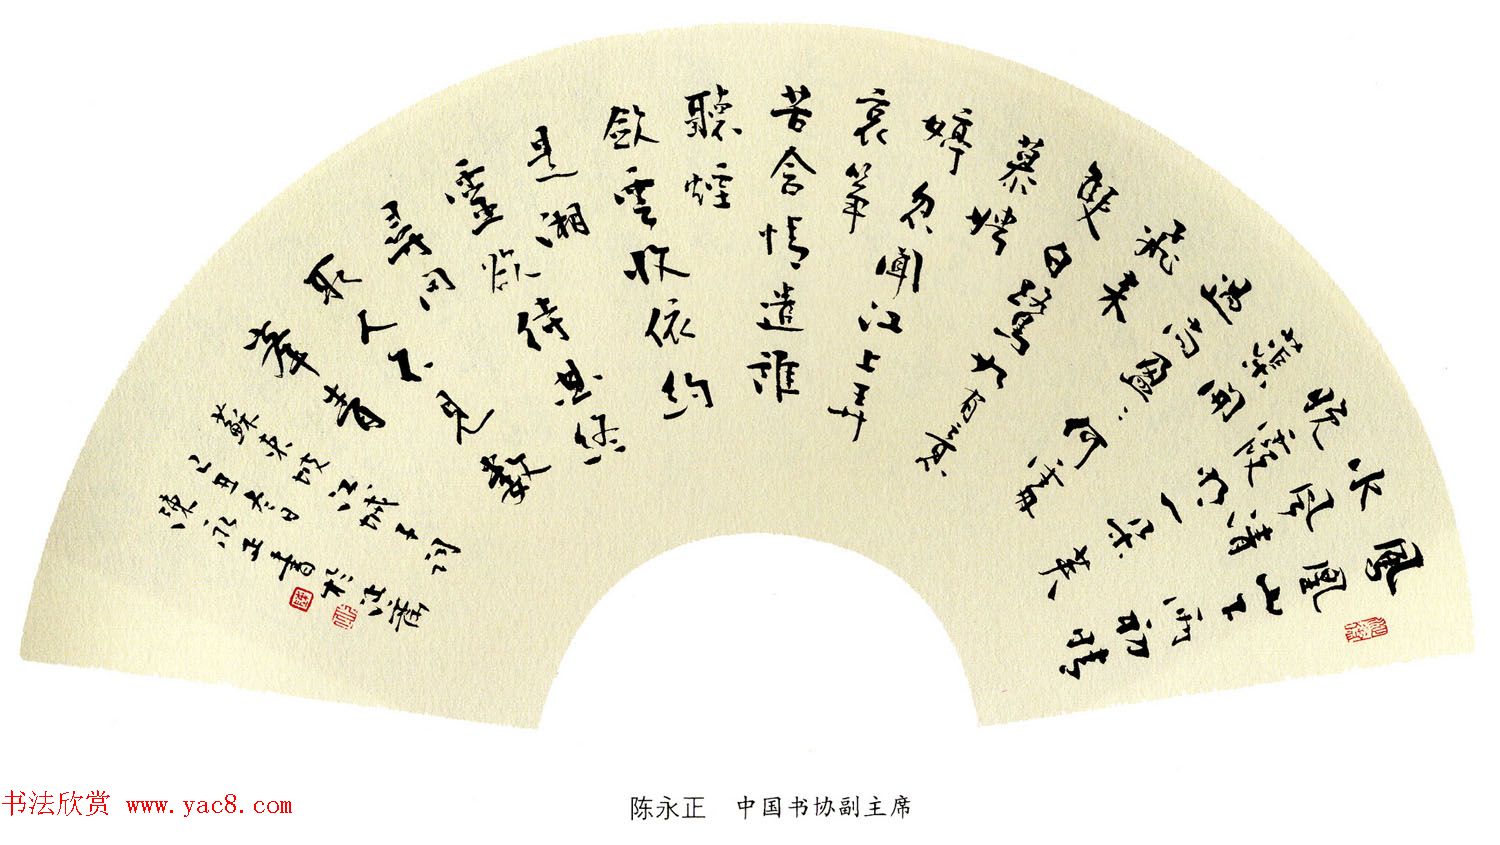 鳳凰山下雨初晴
水風清
晚霞明一朵芙
蕖開
過尚盈〻何處
飛來
雙白鷺如有意
慕娉
婷忽聞江上弄
哀箏
苦含情遣誰
聽煙
斂雲收依約
是湘
靈欲待曲終
尋問
取人不見數
峯青
蘇東坡江城子詞
乙丑冬日
陳永正書於沚齋
陈永正 中国书协副主席
书法欣赏 www.yac8.com